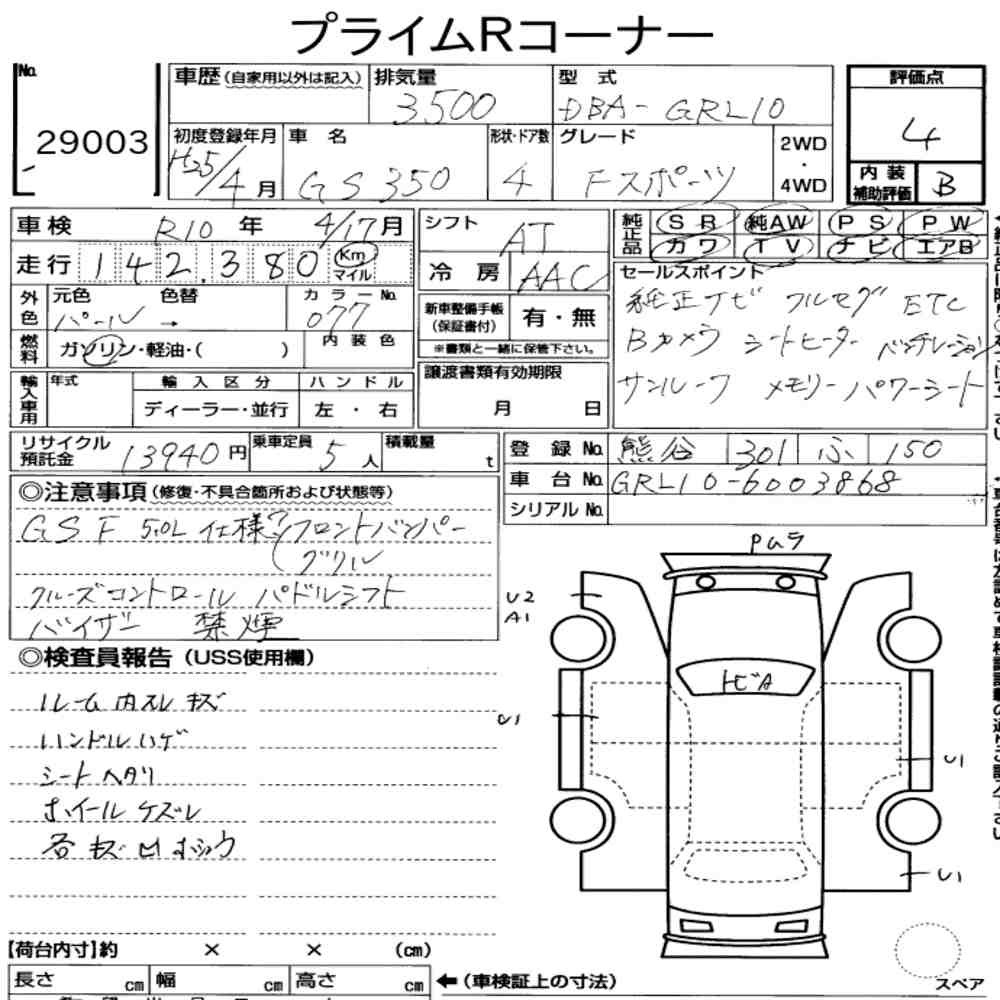 プライムRコーナー
No.
29003
車歴 (自家用以外は記入)
排気量
3500
型式
DBA-GRL10
評価点
4
内装
補助評価
B
初度登録年月
H25/4月
車名
GS350
形状・ドア数
4
グレード
Fスポーツ
2WD
・
4WD
車検 R10年 4/17月
走行 142.380 Km
マイル
シフト AT
冷房 AAC
純正品
SR 純AW PS PW
カワ TV ナビ エアB
外色
元色 色替
パール →
カラーNo.
077
燃料
ガソリン・軽油・( )
内装色
新車整備手帳
(保証書付)
有・無
※書類と一緒に保管下さい。
セールスポイント
純正ナビ フルセグ ETC
Bカメラ シートヒーター ベンチレーション
サンルーフ メモリーパワーシート
輸入車用
年式
輸入区分
ディーラー・並行
ハンドル
左・右
譲渡書類有効期限
月 日
リサイクル
預託金
13940円
乗車定員
5人
積載量
t
登録No. 熊谷 301 ふ 150
車台No. GRL10-6003868
シリアルNo.
◎注意事項 (修復・不具合箇所および状態等)
GSF 5.0L仕様 フロントバンパー
グリル
クルーズコントロール パドルシフト
バイザー 禁煙
◎検査員報告 (USS使用欄)
ルーム内スレキズ
ハンドルハゲ
シートヘタリ
ホイールケズレ
各キズ凹
Pムラ
U2
A1
トビA
U1
U1
U1
【荷台内寸】約 × × (cm)
長さ cm 幅 cm 高さ cm
←(車検証上の寸法)
スペア